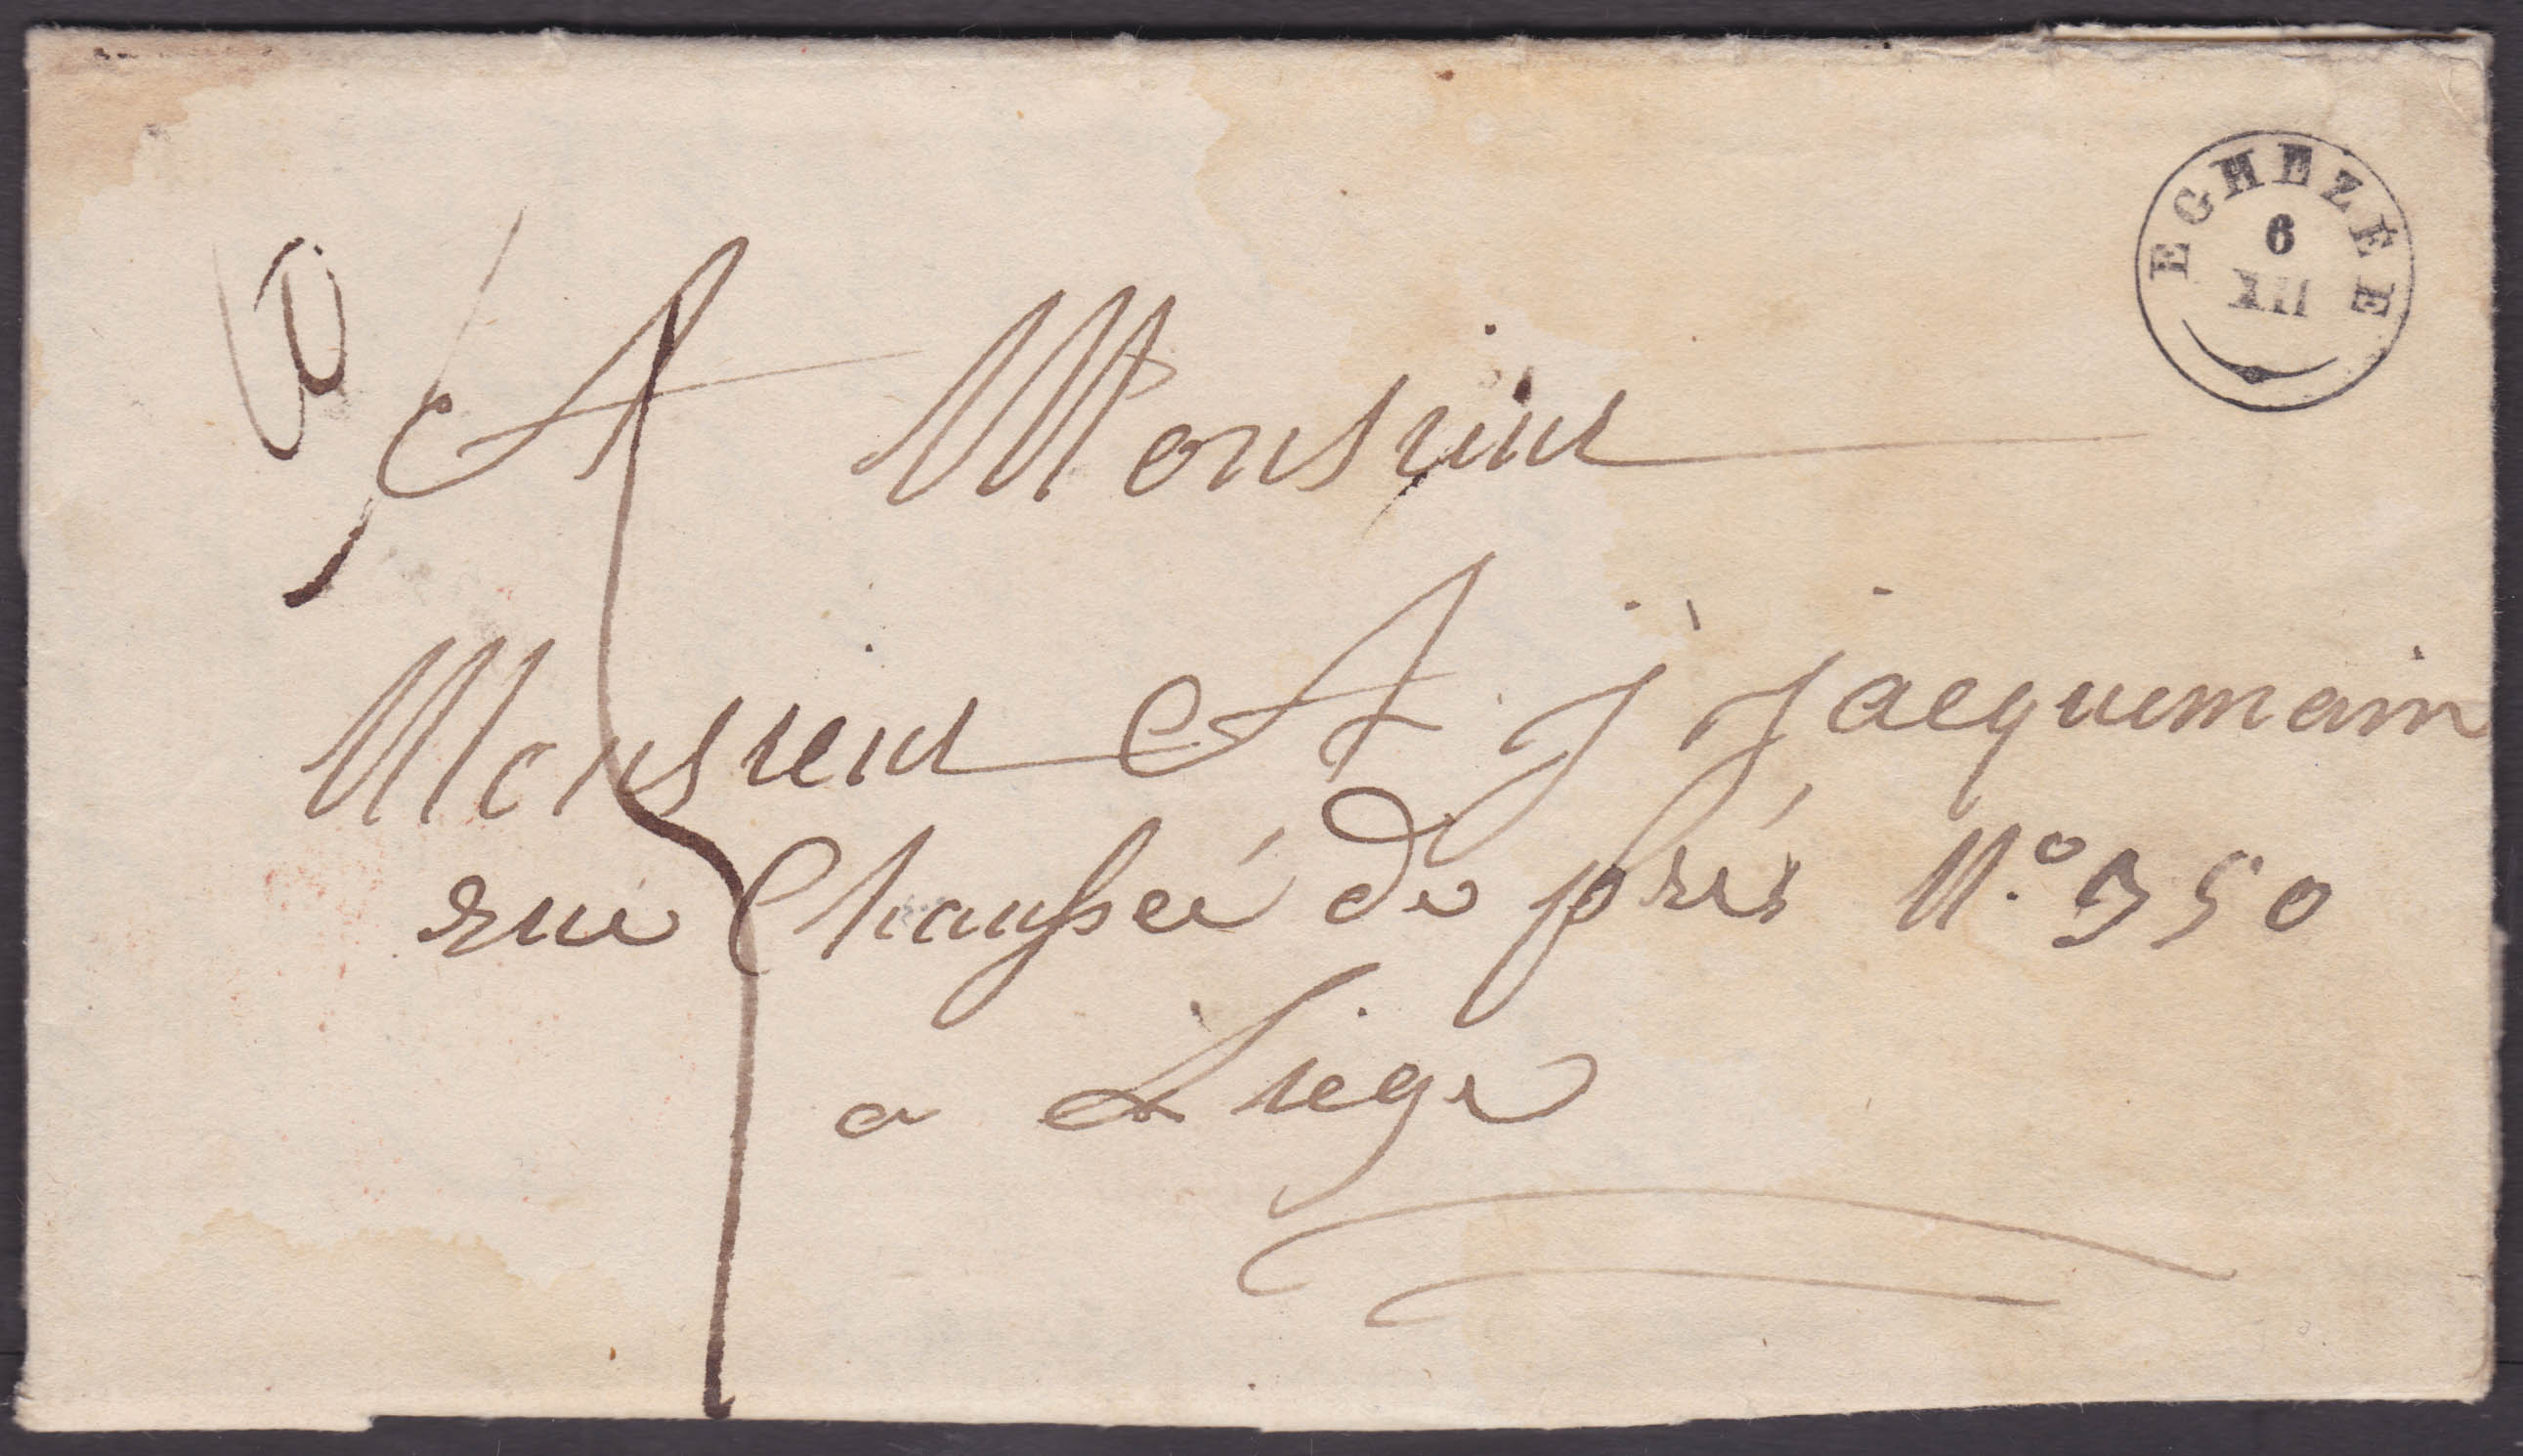 EGHEZÉE
6
XII
A Monsieur
Monsieur A j j jacquemain
rue Chaussée de prés N.o 350
a Liege